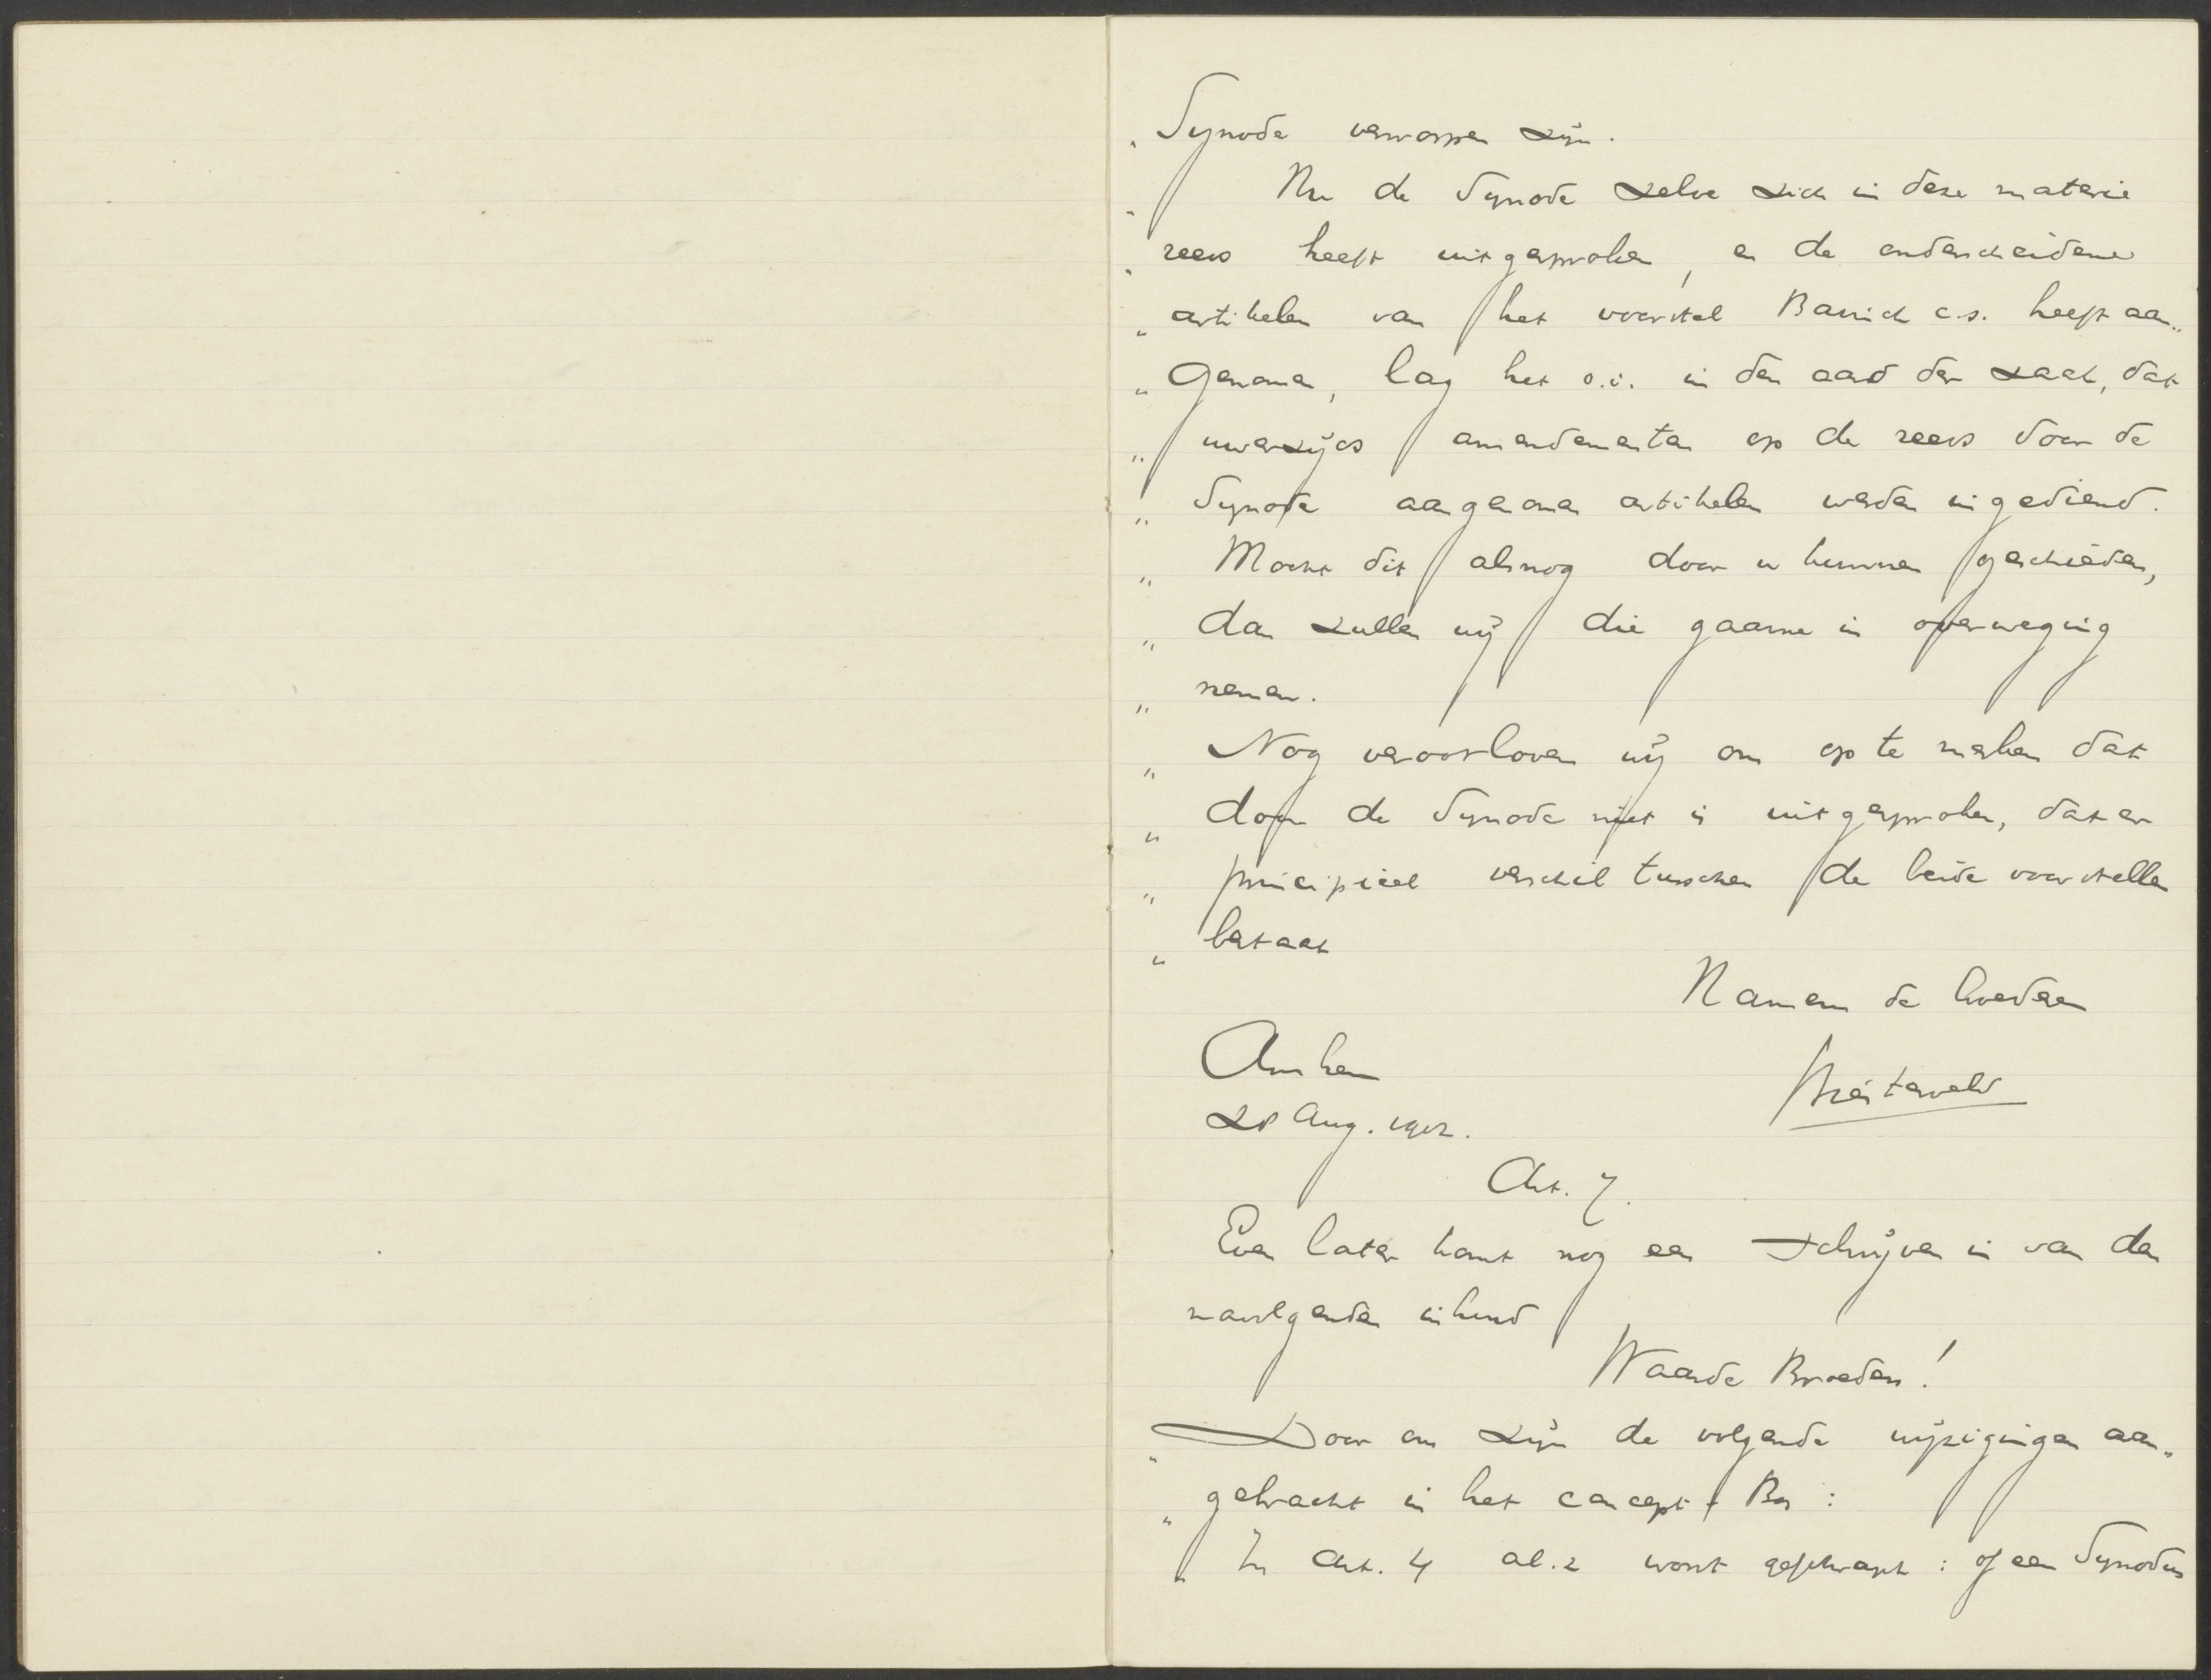 „ Synode verworpen zijn.
„ Nu de Synode zelve zich in deze materie
„ reeds heeft uitgesproken, en de onderscheidene
„ artikelen van het voorstel Bavinck c.s. heeft aan„
„ genomen, lag het o.i. in den aard der zaak, dat
„ uwerzijds amendementen op de reeds door de
„ Synode aangenomen artikelen werden ingediend.
„ Mocht dit alsnog door u kunnen geschieden,
„ dan zullen wij die gaarne in overweging
„ nemen.
„ Nog veroorloven wij ons op te merken dat
„ door de Synode niet is uitgesproken, dat er
„ principieel verschil tusschen de beide voorstellen
„ bestaat
Namens de broederen
Arnhem
28 Aug. 1902.
Art. 7.
Even later komt nog een schrijven in van den
navolgenden inhoud
Waarde Broeders!
„ Door ons zijn de volgende wijzigingen aan„
„ gebracht in het concept-Bos:
„ In Art. 4 al. 2 wordt geschrapt: of een Synodus